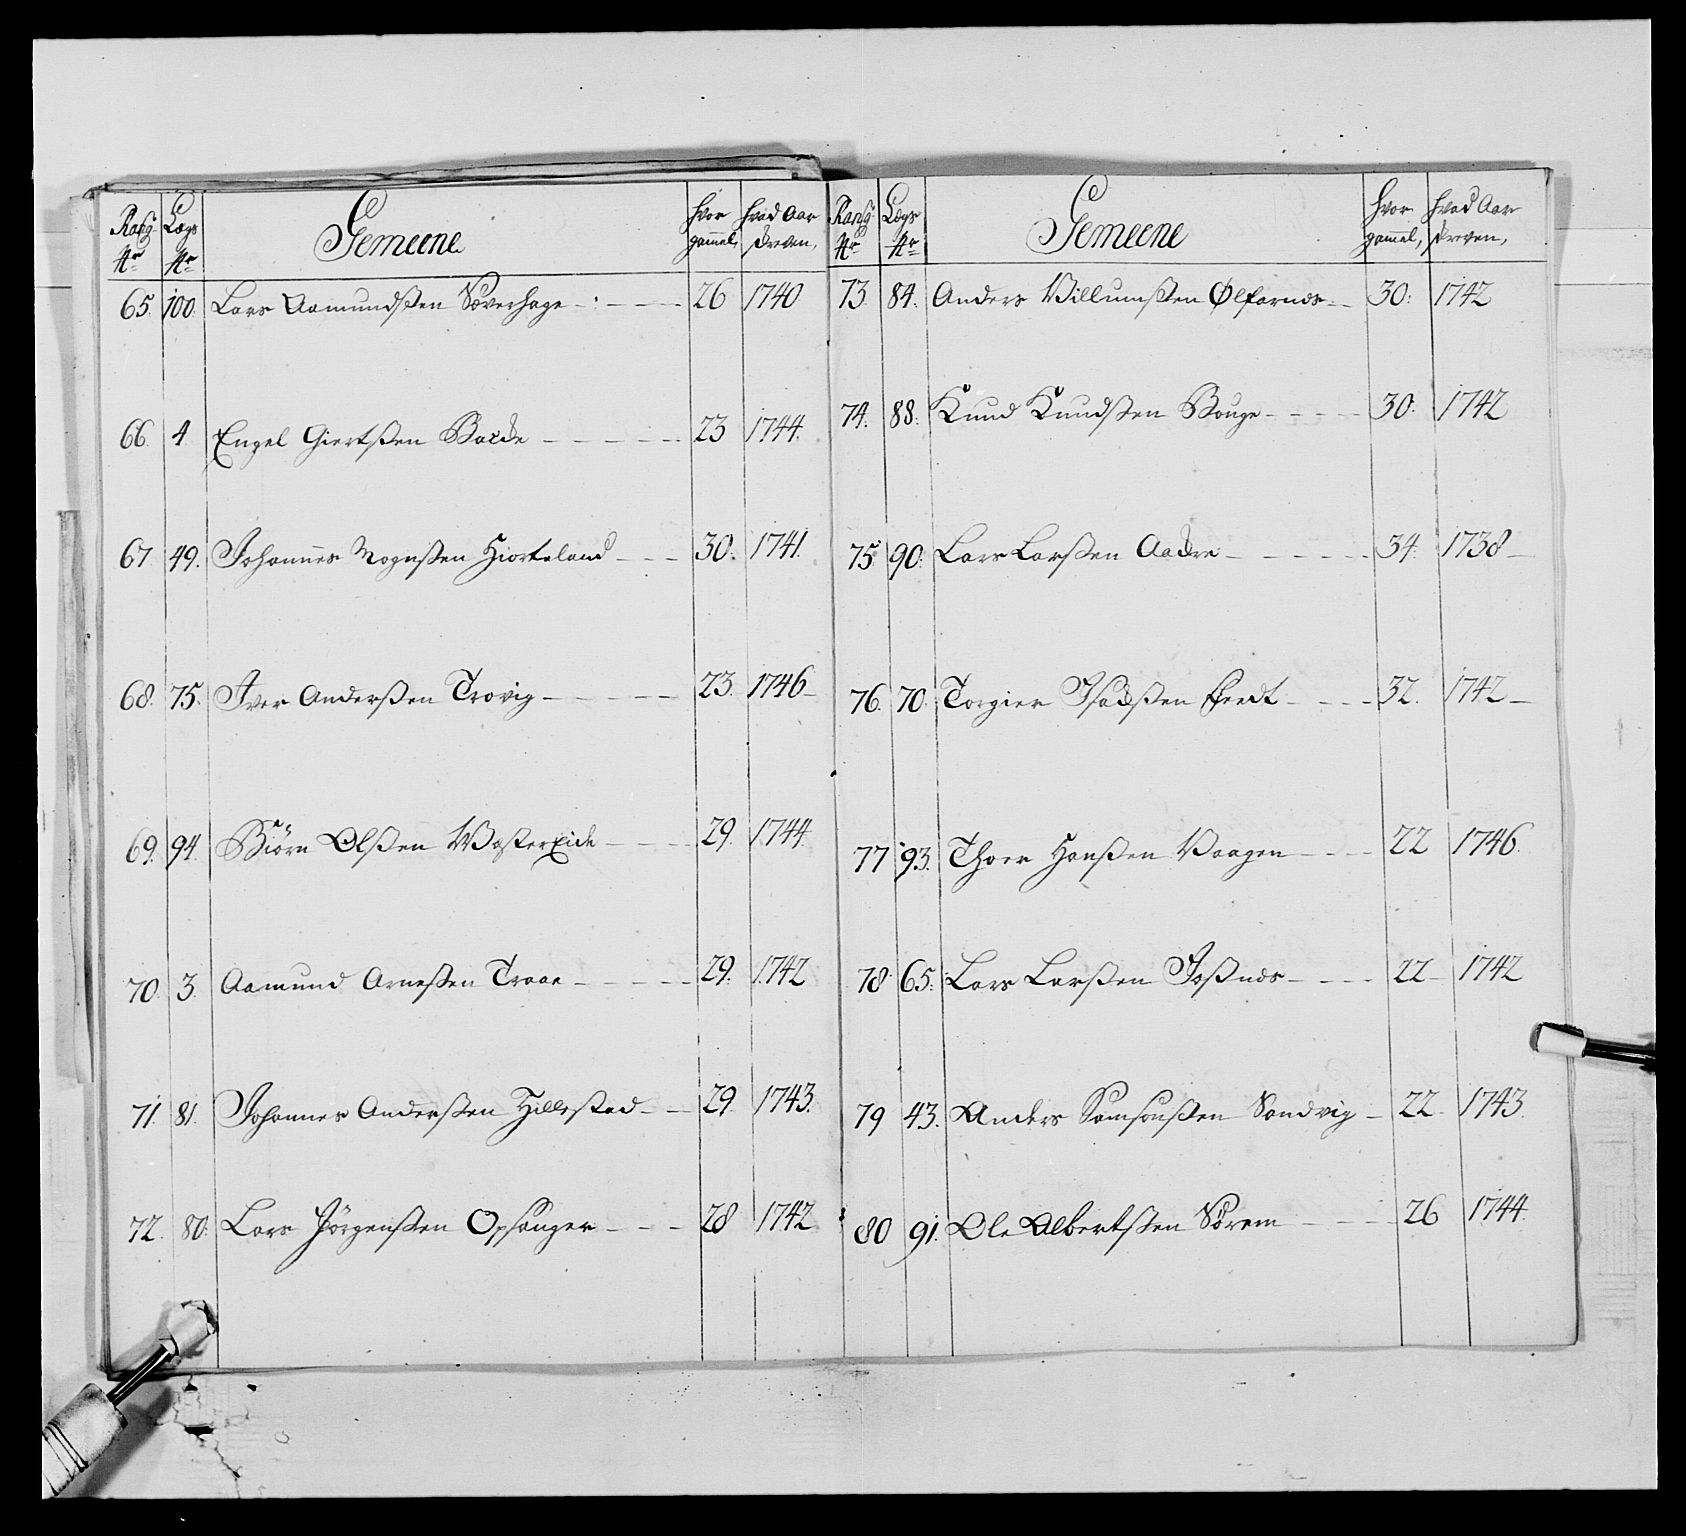 Rang Nr Lægs Nr Gemeene hvor gammel, hvad Aar skreven,
65. 100. Lars Aamundßen Væverhage 26 1740
66. 4 Engel Giertßen 23 1744.
67 49. Johannes Mognßen Hiorteland 30. 1741.
68. 75. Iver Anderßen Trovig 23. 1746
69. 94. Biörn Olßen Westerxide 29. 1744.
70. 3. Aamund Arneßen Traae 29. 1742
71. 81. Johannes Anderßen Hillestad 29. 1743.
72. 80. Lars Jörgenßen Opsanger 28 1742
Rang Nr Lægs Nr Gemeene hvor gammel, hvad Aar skreven,
73. 84. Anders Villumßen Ølfarnes 30: 1742
74. 88. Knud Knudßen Bouge 30. 1742
75. 90. Lars Larßen Aadre 34. 1738
76. 70. Torgier Eredt 32. 1742
77 93. Thoer Hanßen Vaagen 22 1746.
78 65. Lars Larßen Joßnæs 22 1742
79 43. Anders Samsonßen Sandvig 22 1743.
80 91. Ole Albertßen Sörem 26 1744.